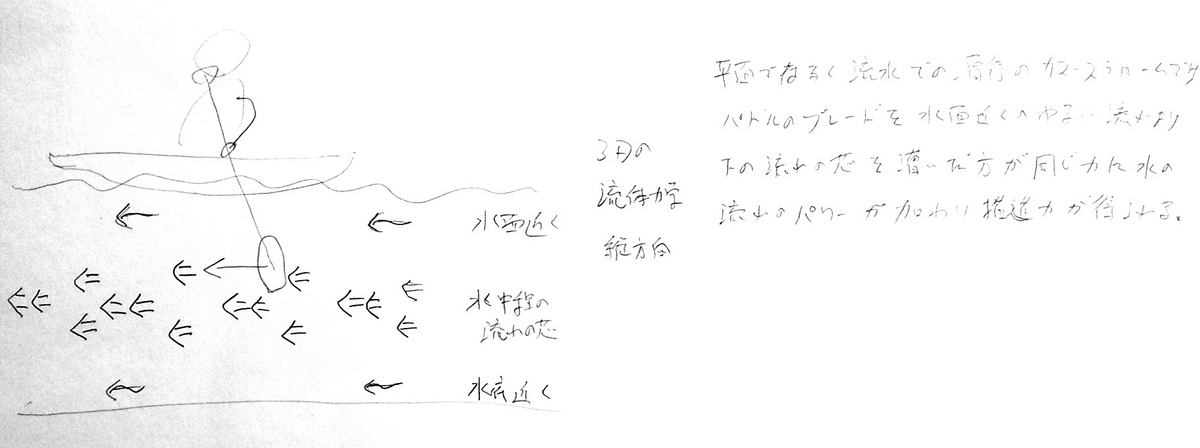 水面近く
水中程の
流れの芯
水底近く
3Dの
流体力学
縦方向
平面でなく流水での、
パドルのブレードを水面近くのゆるい流れより
下の流れの芯を漕いだ方が同じ力に水の
流れのパワーが加わり推進力が得られる。